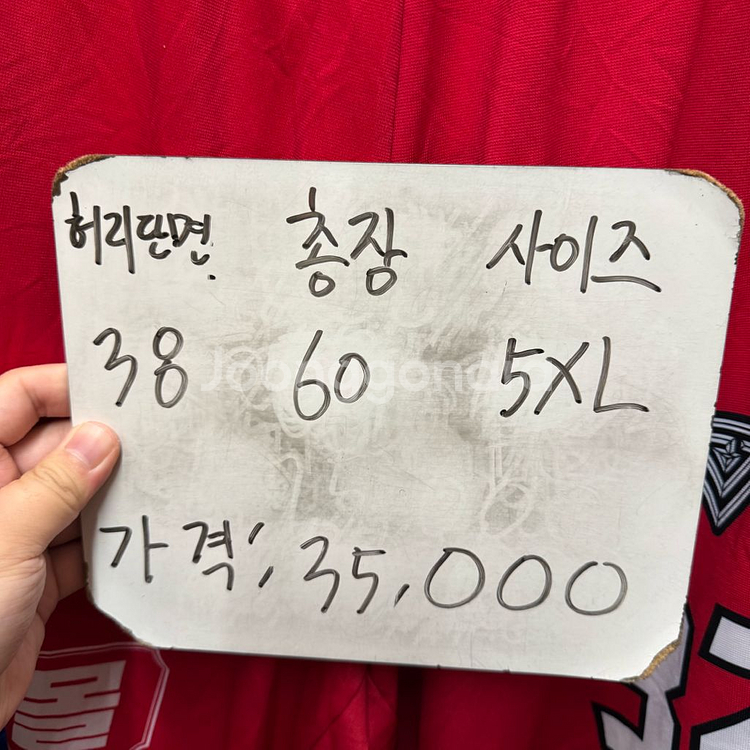 허리단면 총장 사이즈
38 60 5XL
가격; 35,000